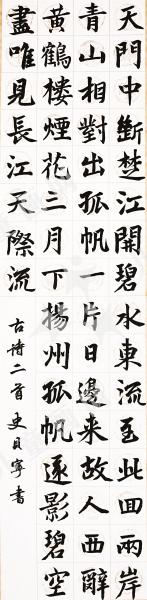 天門中斷楚江開碧水東流至此回兩岸
青山相對出孤帆一片日邊来故人西辭
黃鶴樓煙花三月下揚州孤帆遠影碧空
盡唯見長江天際流
古詩二首史貝寧書